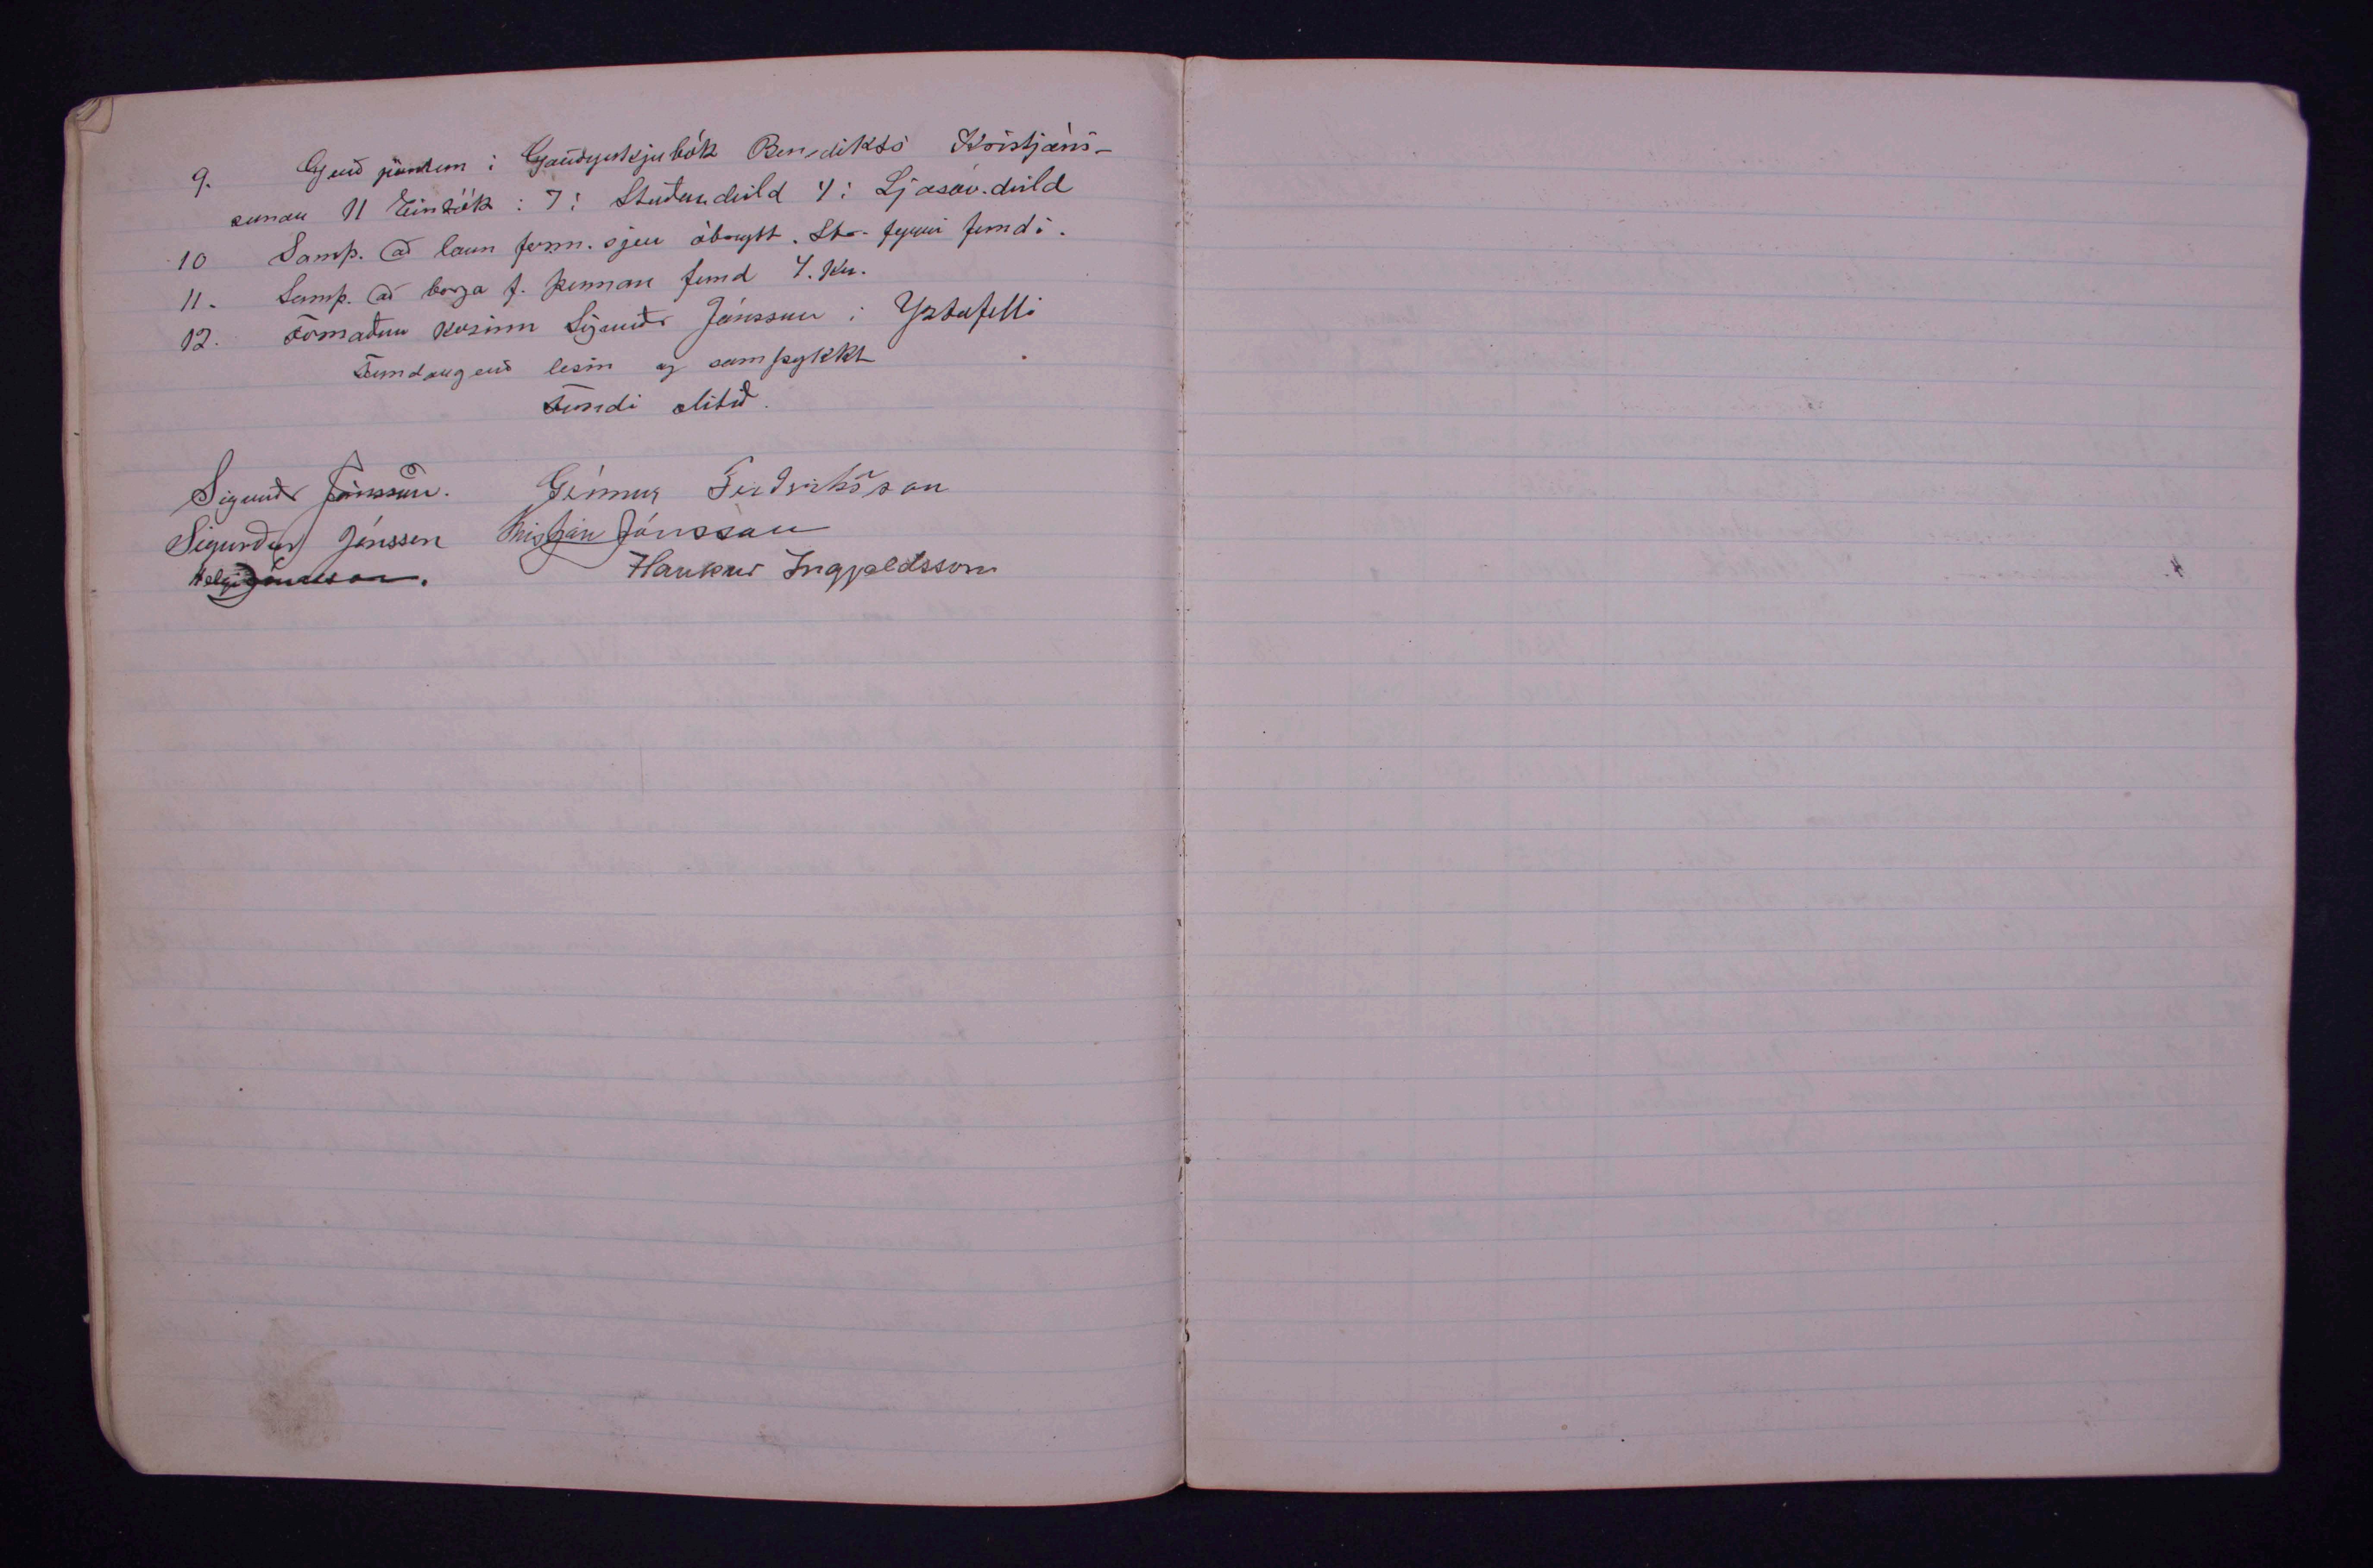 9. Gerð pöntun í Garðyrkjubók Benedikts Kristjáns-
sonar 11 Eintök: 7 í Staðardeild 4 í Ljósav.deild
10 Samþ. að laun form. sjeu óbreytt. Sbr. fyrri fundi.
11. Samþ. að borga f. þennan fund 4. Kr.
12. Formaður kosinn Sigurðr Jónsson í Yztafelli
Fundargerð lesin og samþykkt
Fundi slitið.
Sigurðr Jónsson. Grímur Friðriksson
Sigurður Jónsson Kristján Jónsson
Helgi Jónsson. Haukur Ingjaldsson